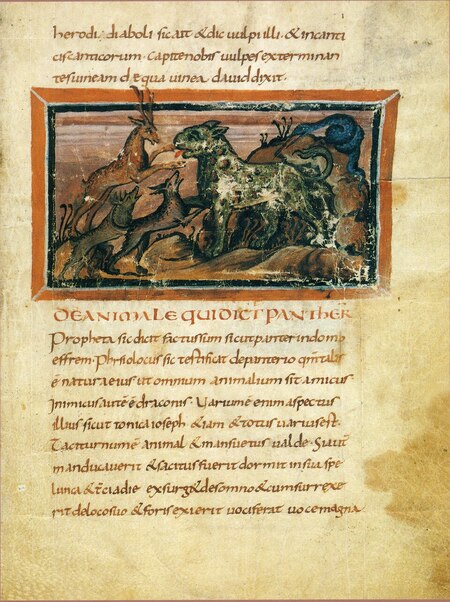 herodi, diaboli sic ait & dic vulpi illi. & incanti
cis canticorum. capite nobis vulpes exterminan
tes vineam de qua vinea david dixit.
DE ANIMALE QUI DICT PANTHER
Propheta sic dicit factus sum sicut panter in domo
effrem. Phisiolocus sic testificat de panterio qm talis
e natura eius ut omnium animalium sit amicus
Inimicus aute e draconis. Varium e enim aspectus
illius sicut tonica ioseph & iam & totus varius est.
Taciturnum e animal & mansuetus valde. Si aute
manducaverit & saciatus fuerit dormit in sua spe
lunca & tercia die exsurg& de somno & cum surrexe
rit de loco suo & foris exierit vociferat voce magna